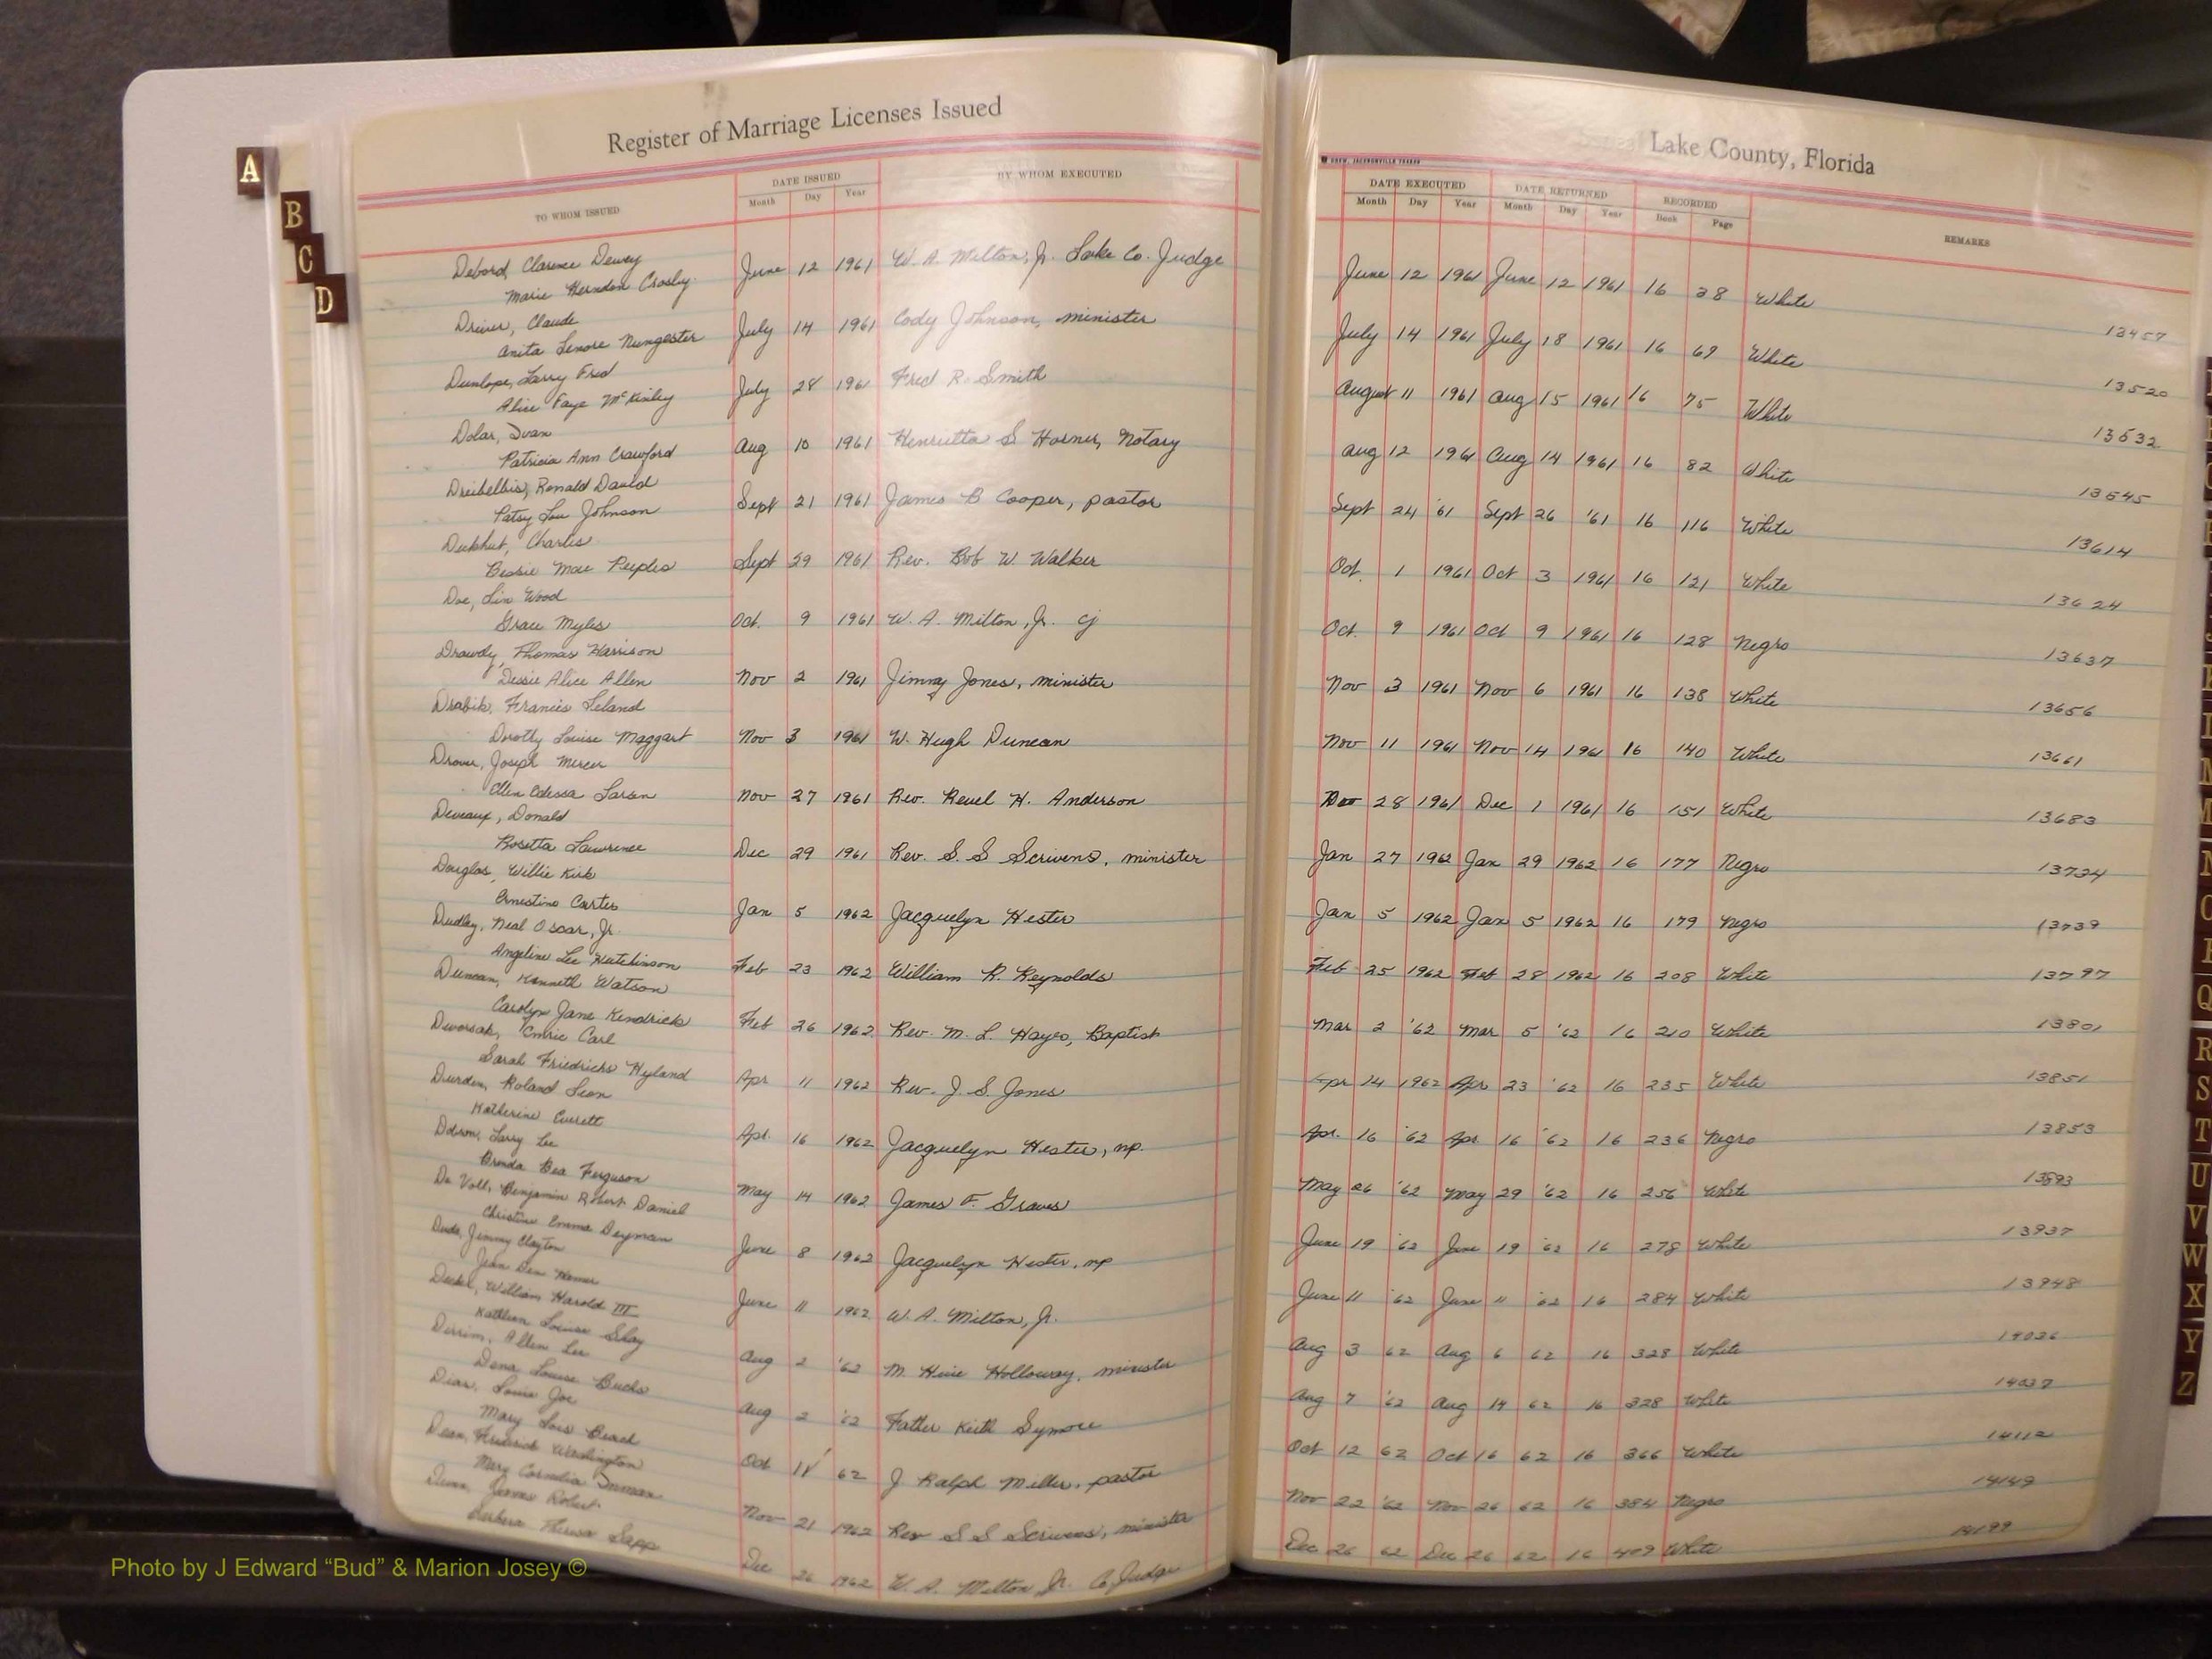 Register of Marriage Licenses Issued
Lake County, Florida
H. & W. B. DREW, JACKSONVILLE
TO WHOM ISSUED DATE ISSUED BY WHOM EXECUTED DATE EXECUTED DATE RETURNED RECORDED REMARKS
Month Day Year Month Day Year Month Day Year Book Page
Debord, Clarence Dewey
Marie Herndon Crosby June 12 1961 W. A. Milton, Jr. Lake Co. Judge June 12 1961 June 12 1961 16 38 White 13457
Driver, Claude
Anita Lenore Nungester July 14 1961 Cody Johnson, minister July 14 1961 July 18 1961 16 69 White 13520
Dunlope, Larry Fred
Alice Faye McKinley July 28 1961 Fred R. Smith August 11 1961 Aug 15 1961 16 75 White 13532
Dolar, Ivan
Patricia Ann Crawford Aug 10 1961 Henrietta S Horner, Notary Aug 12 1961 Aug 14 1961 16 82 White 13545
Dreibelbis, Ronald David
Patsy Lou Johnson Sept 21 1961 James B Cooper, pastor Sept 24 '61 Sept 26 '61 16 116 White 13614
Charles
Bessie Mae Peeples Sept 29 1961 Rev. Bob W. Walker Oct. 1 1961 Oct 3 1961 16 121 White 13624
Doe, Lin Wood
Grace Myles Oct. 9 1961 W. A. Milton, Jr. cj Oct. 9 1961 Oct 9 1961 16 128 Negro 13637
Drawdy, Thomas Harrison
Dessie Alice Allen Nov 2 1961 Jimmy Jones, minister Nov 3 1961 Nov 6 1961 16 138 White 13656
Drabik, Francis Leland
Dorothy Louise Maggart Nov 3 1961 W. Hugh Duncan Nov 11 1961 Nov 14 1961 16 140 White 13661
Joseph Mercer
Ellen Odessa Nov 27 1961 Rev. Reuel H. Anderson Nov 28 1961 Dec 1 1961 16 151 White 13683
Deveaux, Donald
Rosetta Lawrence Dec 29 1961 Rev. S. S Scrivens, minister Jan 27 1962 Jan 29 1962 16 177 Negro 13734
Douglas, Willie Kirk
Ernestine Carter Jan 5 1962 Jacquelyn Hester Jan 5 1962 Jan 5 1962 16 179 Negro 13739
Dudley, Neal Oscar, Jr.
Angeline Lee Hutchinson Feb 23 1962 William R. Reynolds Feb 25 1962 Feb 28 1962 16 208 White 13797
Duncan, Kenneth Watson
Carolyn Jane Kendricks Feb 26 1962 Rev. M. L. Hayes, Baptist Mar 2 '62 Mar 5 '62 16 210 White 13801
Dworsak, Emric Carl
Sarah Friedrichs Hyland Apr 11 1962 Rev. J. S. Jones Apr 14 1962 Apr 23 '62 16 235 White 13851
Durden, Roland Leon
Katherine Everett Apr. 16 1962 Jacquelyn Hester, np. Apr. 16 '62 Apr 16 '62 16 236 Negro 13853
Dobson, Larry Lee
Brenda Bea Ferguson May 14 1962 James F. Graves May 26 '62 May 29 '62 16 256 White 13893
De Voll, Benjamin Robert Daniel
Christine Emma Deyman June 8 1962 Jacquelyn Hester, np June 19 '62 June 19 '62 16 278 White 13937
Jimmy Clayton
Jean June 11 1962 W. A. Milton, Jr. June 11 '62 June 11 '62 16 284 White 13948
William Harold III
Kathleen Louise Shay Aug 2 '62 M. Holloway, minister Aug 3 62 Aug 6 62 16 328 White 14036
Allen Lee
Dena Louise Aug 2 '62 Father Keith Symons Aug 7 '62 Aug 14 62 16 328 White 14037
Louis Joe
Mary Lois Beach Oct 11 62 J Ralph Miller, pastor Oct 12 62 Oct 16 62 16 366 White 14112
Dean, Frederick Washington
Mary Cornelia Inman Nov 21 1962 Rev S S Scrivens, minister Nov 22 '62 Nov 26 62 16 384 Negro 14149
Dunn, James Robert
Barbara Theresa Sapp Dec 26 1962 W. A. Milton Jr. Co. Judge Dec 26 62 Dec 26 62 16 409 White 14199
A
B
C
D
Q
R
S
T
U
V
W
X
Y
Z
Photo by J Edward “Bud” & Marion Josey ©